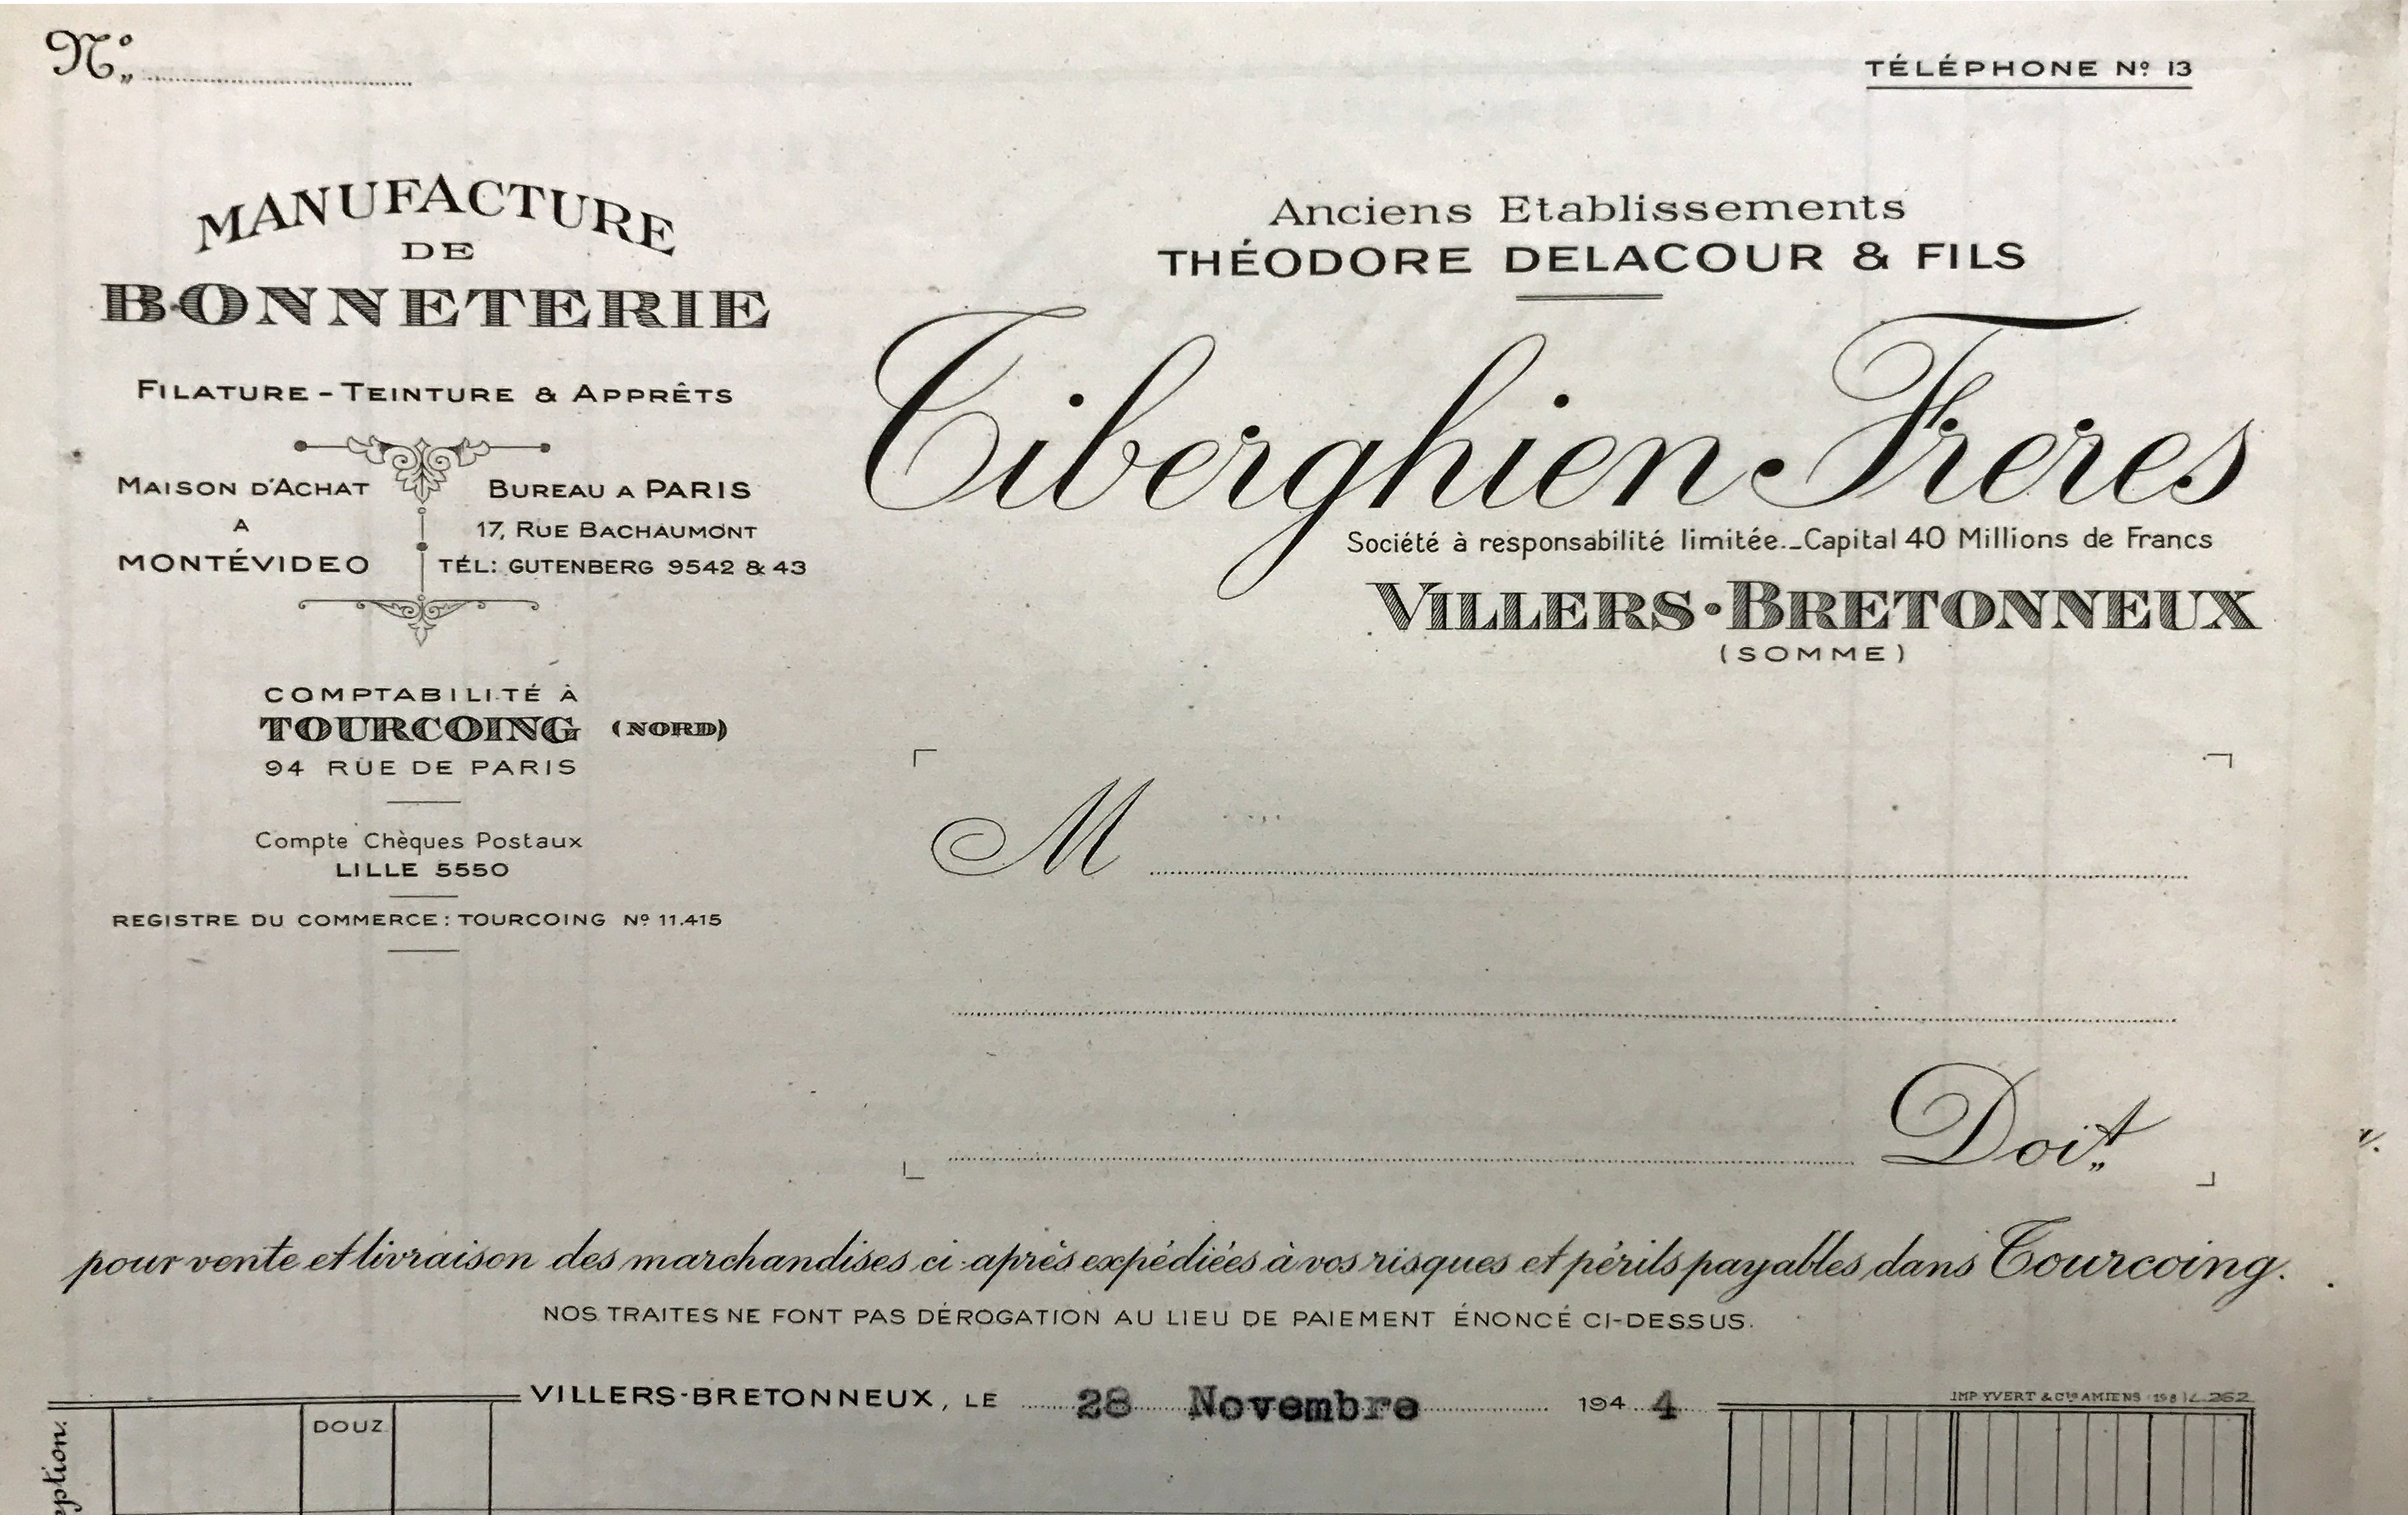 N°
TÉLÉPHONE Nº 13
MANUFACTURE
DE
BONNETERIE
FILATURE - TEINTURE & APPRÊTS
MAISON D'ACHAT
A
MONTÉVIDEO
BUREAU A PARIS
17, RUE BACHAUMONT
TÉL: GUTENBERG 9542 & 43
COMPTABILITÉ À
TOURCOING (NORD)
94 RUE DE PARIS
Compte Chèques Postaux
LILLE 5550
REGISTRE DU COMMERCE: TOURCOING Nº 11.415
Anciens Etablissements
THÉODORE DELACOUR & FILS
Tiberghien Frères
Société à responsabilité limitée._Capital 40 Millions de Francs
VILLERS-BRETONNEUX
(SOMME)
M
Doit
pour vente et livraison des marchandises ci-après expédiées à vos risques et périls payables dans Tourcoing.
NOS TRAITES NE FONT PAS DÉROGATION AU LIEU DE PAIEMENT ÉNONCÉ CI-DESSUS.
VILLERS-BRETONNEUX, LE 28 Novembre 1944
IMP YVERT & Cie AMIENS
DOUZ